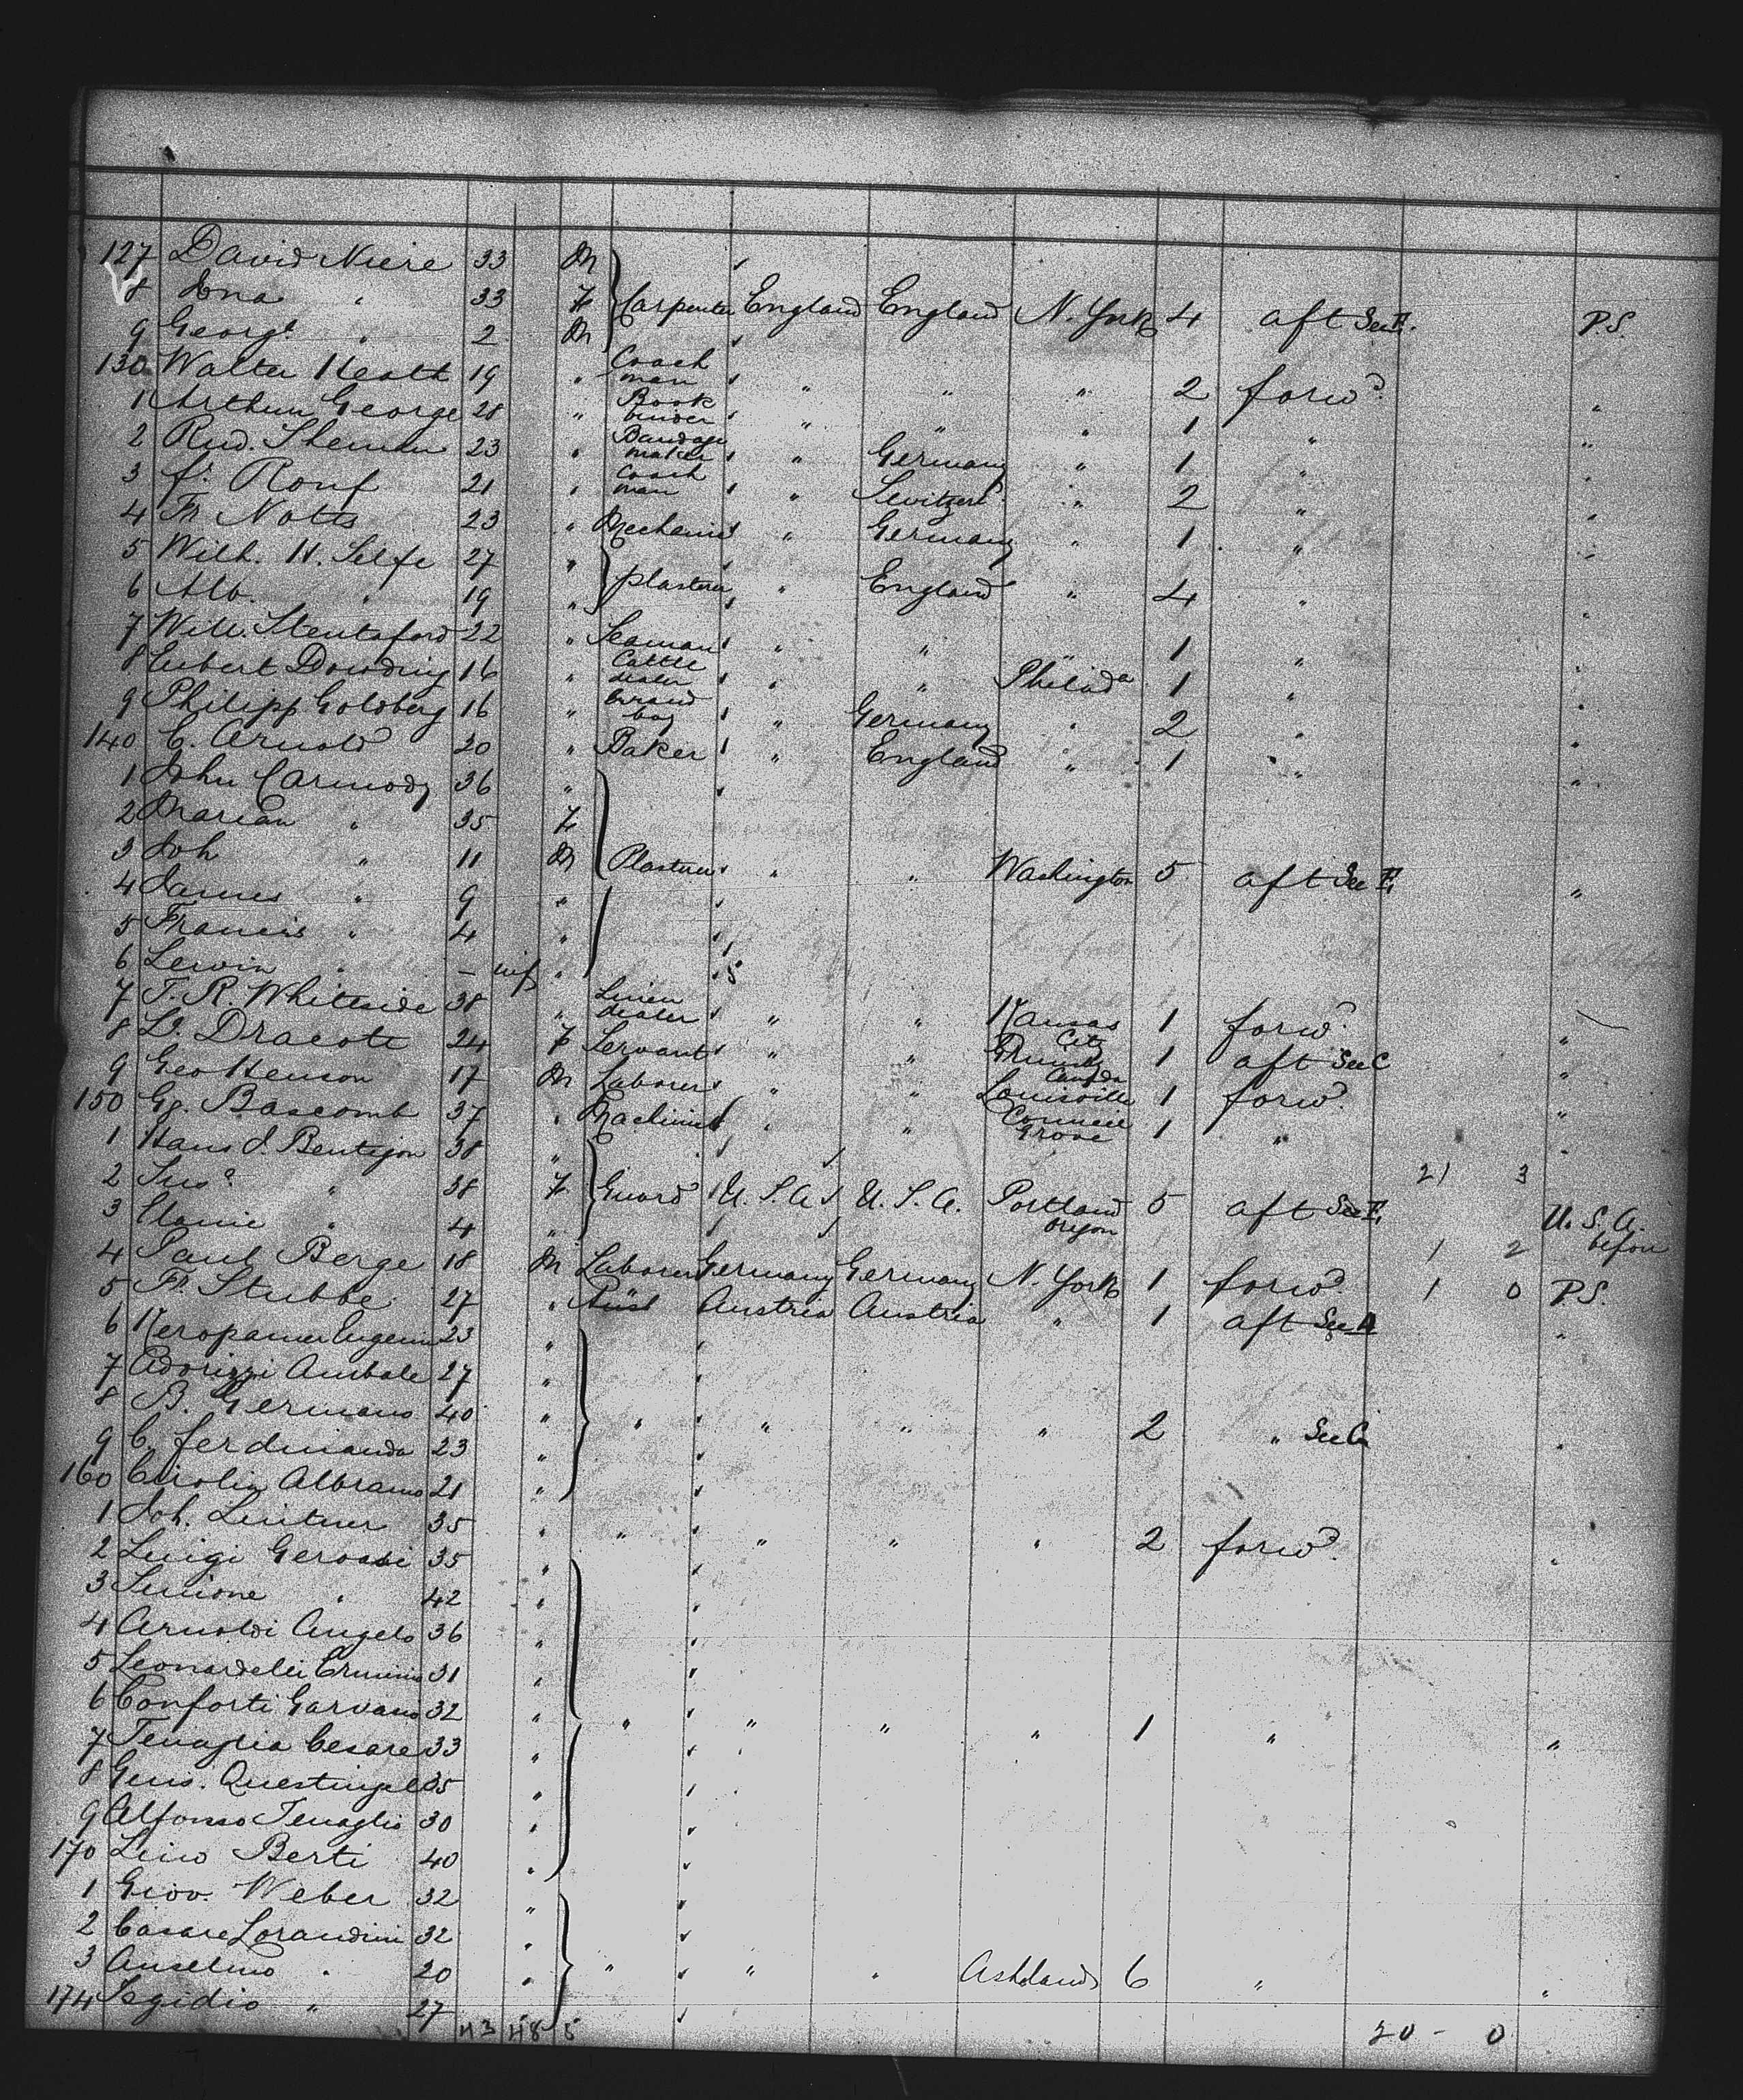 127 David Niere 33 M
8 Iona " 33 F Carpenter England England N. York 4 aft Sec E. P.S.
9 Georg " 2 M
130 Walter Heath 19 " Coach man " " " 2 forwd. "
1 Arthur George 28 " Book binder " " " 1 " "
2 Rud. 23 " Bandage maker " Germany " 1 " "
3 21 " Coach man " Switzerld " 2 " "
4 Fr Notts 23 " Mechanic " Germany " 1 " "
5 Wilh. H. Selfe 27 "
6 Alb. " 19 " plasterer " England " 4 " "
7 Will. Stentsford 22 " Seaman " " " 1 " "
8 Hubert Dowding 16 " Cattle dealer " " Philada 1 " "
9 Philipp Goldberg 16 " Errand boy " Germany " 2 " "
140 C. Arnold 20 " Baker " England " 1 " "
1 John Carmody 36 "
2 Marian " 35 F
3 Joh " 11 M Plasterer " " Washington 5 aft Sec E. "
4 James " 9 "
5 Francis " 4 "
6 Lewin " - inf "
7 T. R. Whiteside 38 " Linen dealer " " Kansas City 1 forwd. "
8 Ls. Dracott 24 F Servant " " Canada 1 aft Sec C "
9 Geo Henson 17 M Laborer " " Louisville 1 forwd. "
150 Gg. Bascomb 37 " Machinist " " Council Grove 1 " "
1 Hans J. Bentigon 38 "
21 3
2 Susa " 38 F Guard U. S. A. U. S. A. Portland Oregon 5 aft Sec E. U. S. A. before
3 " 4 "
1 2
4 Paul Berge 18 M Laborer Germany Germany N. York 1 forwd. 1 0 P.S.
5 Fr. Stubbe 27 " Austria Austria " 1 aft Sec A "
6 Eugenio 23 "
7 Adorizzi Anibale 27 "
8 B. Germano 40 " " " " " 2 " Sec C "
9 C. Ferdinando 23 "
160 Cirolia Albramo 21 "
1 Joh. Lintner 35 " " " " " 2 forwd. "
2 Luigi Gerossi 35 "
3 Simone " 42 "
4 Arnoldi Angelo 36 "
5 Leonardelli Erminio 31 "
6 Conforti Garvano 32 " " " " " 1 " "
7 Tenaglia Cesare 33 "
8 Gius. 35 "
9 Alfonso Tenaglio 30 "
170 Lino Berti 40 "
1 Giov. Weber 32 "
2 Casare Lorandini 32 "
3 Anselmo " 20 " " " " Ashland 6 " "
174 Segidio " 27
43 48 5 20 - 0